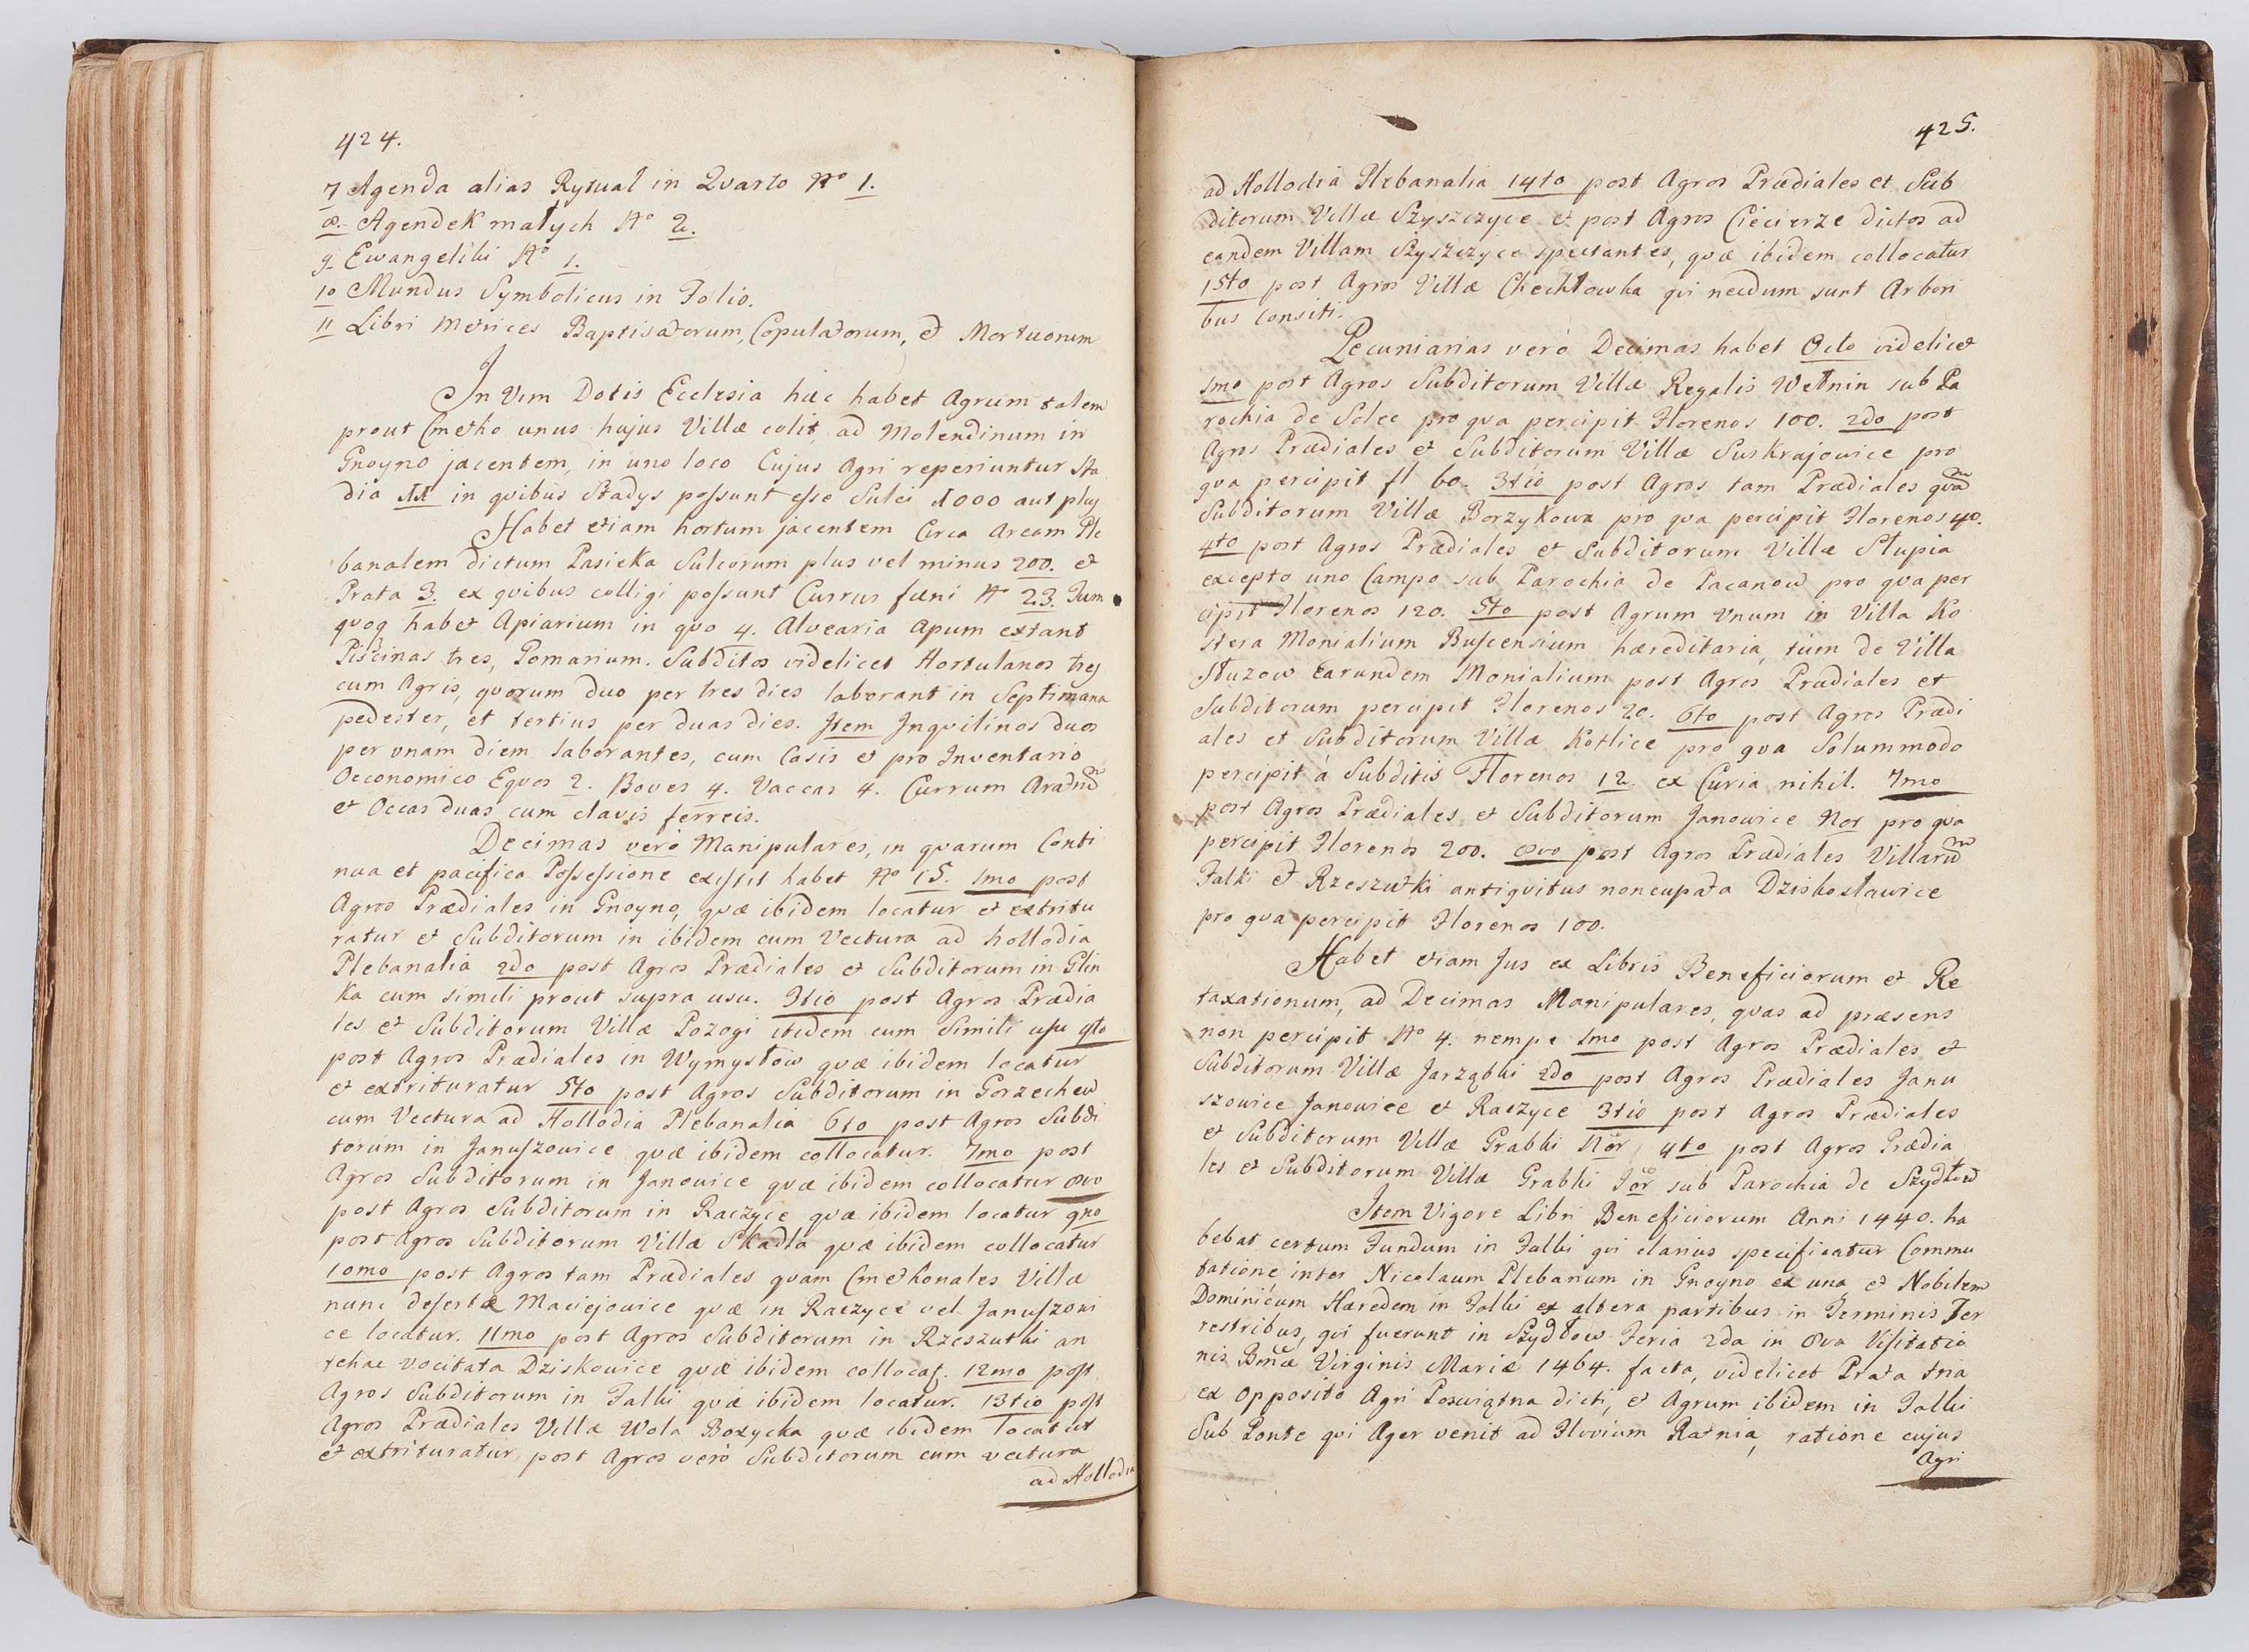 424.
7 Agenda alias Rytual in Quarto No 1.
8. Agendek małych No 2.
9. Ewangeliki No 1.
10 Mundus Symbolicus in Folio.
11 Libri Metrices Baptisatorum, Copulatorum, et Mortuorum
In Vim Dotis Ecclesia hæc habet Agrum talem
prout Cmetho unus hujus Villæ colit, ad Molendinum in
Gnoyno jacentem, in uno loco Cujus Agri reperiuntur Sta
dia 11 in quibus Stadys possunt esse Sulci 1000 aut plus
Habet etiam hortum jacentem Circa Aream Ple
banalem dictum Pasieka Sulcorum plus vel minus 200. et
Prata 3. ex quibus colligi possunt Currus fæni No 23. Tum
quoq habet Apiarium in quo 4. Alvearia Apum extant
Piscinas tres, Pomarium. Subditos videlicet Hortulanos tres
cum Agris, quorum duo per tres dies laborant in Septimana
pedester, et tertius per duas dies. Item Inquilinos duos
per unam diem laborantes, cum Casis et pro Inventario
Oeconomico Equos 2. Boves 4. Vaccas 4. Currum
et Occas duas cum clavis ferreis.
Decimas verò Manipulares, in quarum Conti
nua et pacifica Possessione existit habet No 15. 1mo post
Agros Prædiales in Gnoyno, quæ ibidem locatur et extritu
ratur et Subditorum in ibidem cum Vectura ad hollodia
Plebanalia 2do post Agros Prædiales et Subditorum in Glin
ka cum simili prout supra usu. 3tio post Agros Prædia
les et Subditorum Villæ Pozogi itidem cum Simili usu 4to
post Agros Prædiales in Wymysłow quæ ibidem locatur
et extrituratur 5to post Agros Subditorum in Gorzechew
cum Vectura ad Hollodia Plebanalia 6to post Agros Subdi
torum in Januszowice quæ ibidem collocatur. 7mo post
Agros Subditorum in Janowice quæ ibidem collocatur 8vo
post Agros Subditorum in Raczyce quæ ibidem locatur 9no
post Agros Subditorum Villæ Skadla quæ ibidem collocatur
10mo post Agros tam Prædiales quam Cmethonales Villæ
nunc desertæ Maciejowice quæ in Raczyce vel Januszowi
ce locatur. 11mo post Agros Subditorum in Rzeszutki an
tehac vocitata Dziskowice quæ ibidem collocat. 12mo post
Agros Subditorum in Falki quæ ibidem locatur. 13tio post
Agros Prædiales Villæ Wola Bozycka quæ ibidem locatur
et extrituratur, post Agros verò Subditorum cum vectura
ad Hollodia
425.
ad Hollodia Plebanalia 14to post Agros Prædiales et Sub
ditorum Villæ Szyszczyce et post Agros Ciecierze dictos ad
eandem Villam Szyszczyce spectantes, quæ ibidem collocatur
15to post Agros Villæ Chechłowka qui necdum sunt Arbori
bus Consiti.
Pecuniarias verò Decimas habet Octo videlicet
1mo post Agros Subditorum Villæ Regalis Wełnin sub Pa
rochia de Solec pro qua percipit Florenos 100. 2do post
Agros Prædiales et Subditorum Villæ Suskrajowice pro
qua percipit fl 60. 3tio post Agros tam Prædiales quam
Subditorum Villæ Borzykowa pro qua percipit Florenos 40.
4to post Agros Prædiales et Subditorum Villæ Słupia
excepto uno Campo sub Parochia de Pacanow pro qua per
cipit Florenos 120. 5to post Agrum Unum in Villa Ko
stera Monialium Buscensium hæreditaria, tùm de Villa
Słuzow Earundem Monialium post Agros Prædiales et
Subditorum percipit Florenos 20. 6to post Agros Prædi
ales et Subditorum Villæ Kotlice pro qua Solummodo
percipit á Subditis Florenos 12. ex Curia nihil. 7mo
post Agros Prædiales et Subditorum Janowice Nor pro qua
percipit Florenos 200. 8vo post Agros Prædiales Villarum
Falki et Rzeszutki antiquitus noncupata Dziskosławice
pro qua percipit Florenos 100.
Habet etiam Jus ex Libris Beneficiorum et Re
taxationum, ad Decimas Manipulares, quas ad præsens
non percipit No 4. nempe 1mo post Agros Prædiales et
Subditorum Villæ Jarząbki 2do post Agros Prædiales Janu
szowice Janowice et Raczyce 3tio post Agros Prædiales
et Subditorum Villæ Grabki Nor, 4to post Agros Prædia
les et Subditorum Villæ Grabki sub Parochia de Szydłow
Item Vigore Libri Beneficiorum Anni 1440. ha
bebat certum Fundum in Falki qui clarius specificatur Commu
tatione inter Nicolaum Plebanum in Gnoyno ex una et Nobilem
Dominicum Hæredem in Falki ex altera partibus in Terminis Ter
restribus, qui fuerunt in Szydłow Feria 2da in 8va Visitatio
nis Bmæ Virginis Mariæ 1464. facta, videlicet Prata tria
ex opposito Agri Poswiątna dicti, et Agrum ibidem in Falki
Sub Ponte qui Ager venit ad Fluvium Ratnia, ratione cujus
Agri